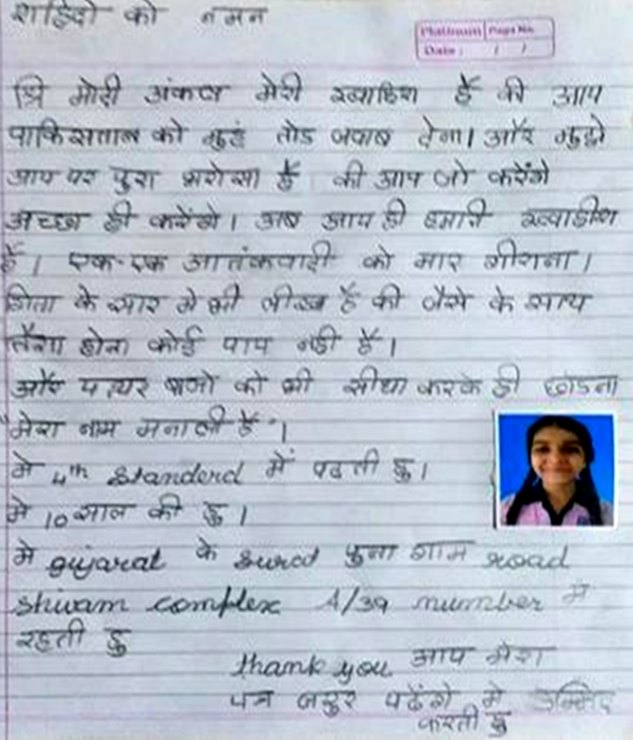 शहिदो को नमन
Platinum Page No.
Date : / /
श्रि मोदी अंकल मेरी ख्वाहिश है की आप
पाकिसतान को मुहं तोड जवाब देना। और मुझे
आप पर पुरा भरोसा है की आप जो करेंगे
अच्छा ही करेंगे। अब आप ही हमारी ख्वाहीश
है। एक-एक आतंकवादी को मार गीराना।
गिता के सार मे भी लीखा है की जैसे के साथ
तैसा होना कोई पाप नही है।
और पत्थर बाजो को भी सीधा करके ही छोडना
"मेरा नाम मनाली है"।
मे 4th Standerd में पढती हु।
मे 10 साल की हु।
मे gujarat के surat पुना गाम road
shivam complex A/39 number मे
रहती हु
thank you आप मेरा
पत्र जरुर पढेंगे मे उम्मिद
करती हु